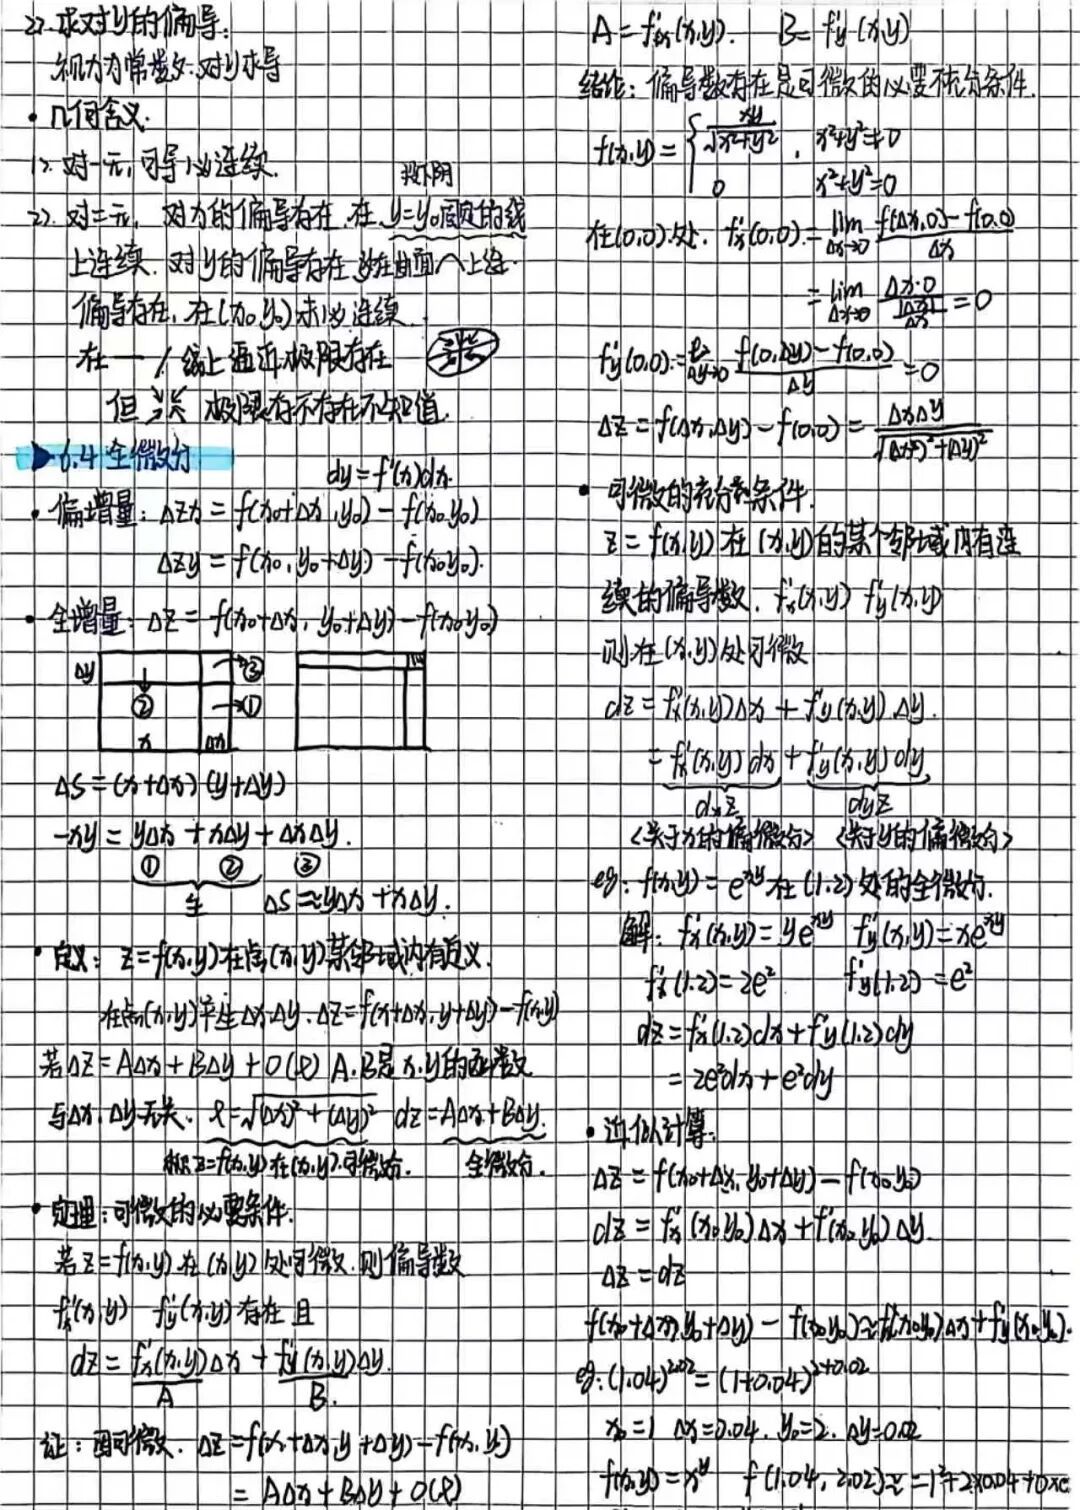 2>. 求对y的偏导:
视x为常数.对y求导
• 几何含义.
1>. 对一元,可导必连续.
2>. 对二元, 对x的偏导存在.在 y=y₀固定的线
上连续. 对y的偏导存在
偏导存在,在(x₀,y₀)未必连续.
在 一 / 线上逼近极限存在
但 极限存不存在不知值.
▶ 6.4 全微分
dy=f'(x)dx.
• 偏增量: Δzx = f(x₀+Δx,y₀) - f(x₀,y₀)
Δzy = f(x₀,y₀+Δy) - f(x₀y₀).
• 全增量: Δz = f(x₀+Δx, y₀+Δy) - f(x₀y₀)
Δy ② →③ →① x Δx
ΔS = (x+Δx)(y+Δy)
-xy = yΔx + xΔy + ΔxΔy.
① ② ③
主 ΔS≈yΔx+xΔy.
• 定义: z=f(x,y)在点(x,y)某邻域内有定义.
在点(x,y)产生Δx.Δy. Δz=f(x+Δx,y+Δy)-f(x,y)
若Δz=AΔx+BΔy+O(ρ) A.B是x.y的函数
与Δx.Δy无关. ρ=√(Δx)²+(Δy)² dz=AΔx+BΔy.
称z=f(x,y)在(x,y)可微分. 全微分.
• 定理:可微的必要条件.
若z=f(x,y)在(x,y)处可微.则偏导数
f'x(x,y) f'y(x,y)存在且
dz = f'x(x,y)Δx + f'y(x,y)Δy.
A B.
证: 因可微. Δz=f(x+Δx,y+Δy)-f(x,y)
= AΔx+BΔy+O(ρ)
A=f'x(x,y). B=f'y(x,y)
结论: 偏导数存在是可微的必要不充分条件.
f(x,y) = { xy/√x²+y² , x²+y²≠0
0 x²+y²=0
在(0,0)处. f'x(0,0) = lim Δx→0 f(Δx,0)-f(0,0)/Δx
= lim Δx→0 Δx·0/|Δx|/Δx = 0
f'y(0,0) = Δy→0 f(0,Δy)-f(0,0)/Δy = 0
Δz = f(Δx,Δy)-f(0,0) = ΔxΔy/√(Δx)²+(Δy)²
• 可微的充分条件.
z=f(x,y)在(x,y)的某个邻域内有连
续的偏导数. f'x(x,y) f'y(x,y)
则在(x,y)处可微
dz = f'x(x,y)Δx + f'y(x,y).Δy.
= f'x(x,y)dx + f'y(x,y)dy
dxz dyz
<关于x的偏微分> <关于y的偏微分>
eg: f(x,y)=e^xy在(1.2)处的全微分.
解: f'x(x,y)=ye^xy f'y(x,y)=xe^xy
f'x(1.2)=2e² f'y(1.2)=e²
dz=f'x(1.2)dx+f'y(1.2)dy
=2e²dx+e²dy
• 近似计算:
Δz = f(x₀+Δx,y₀+Δy)-f(x₀y₀)
dz = f'x(x₀y₀)Δx+f'(x₀y₀)Δy.
Δz=dz
f(x₀+Δx,y₀+Δy)-f(x₀y₀)≈f'(x₀y₀)Δx+f'y(x₀y₀).
eg:(1.04)^2.02=(1+0.04)^2+0.02
x₀=1 Δx=0.04. y₀=2. Δy=0.02
f(x,y)=x^y f(1.04,2.02)≈=1²+2×0.04+0×